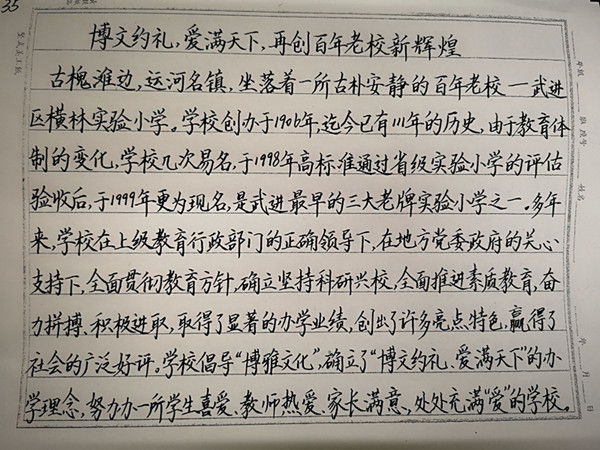 35
博文约礼,爱满天下,再创百年老校新辉煌
古槐滩边,运河名镇,坐落着一所古朴安静的百年老校—武进
区横林实验小学。学校创办于1906年,迄今已有111年的历史,由于教育体
制的变化,学校几次易名,于1998年高标准通过省级实验小学的评估
验收后,于1999年更为现名,是武进最早的三大老牌实验小学之一。多年
来,学校在上级教育行政部门的正确领导下,在地方党委政府的关心
支持下,全面贯彻教育方针,确立坚持科研兴校,全面推进素质教育,奋
力拼搏、积极进取,取得了显著的办学业绩,创出了许多亮点特色,赢得了
社会的广泛好评。学校倡导“博雅文化”,确立了“博文约礼、爱满天下”的办
学理念,努力办一所学生喜爱、教师热爱、家长满意、处处充满“爱”的学校。
姓名
年 月 日